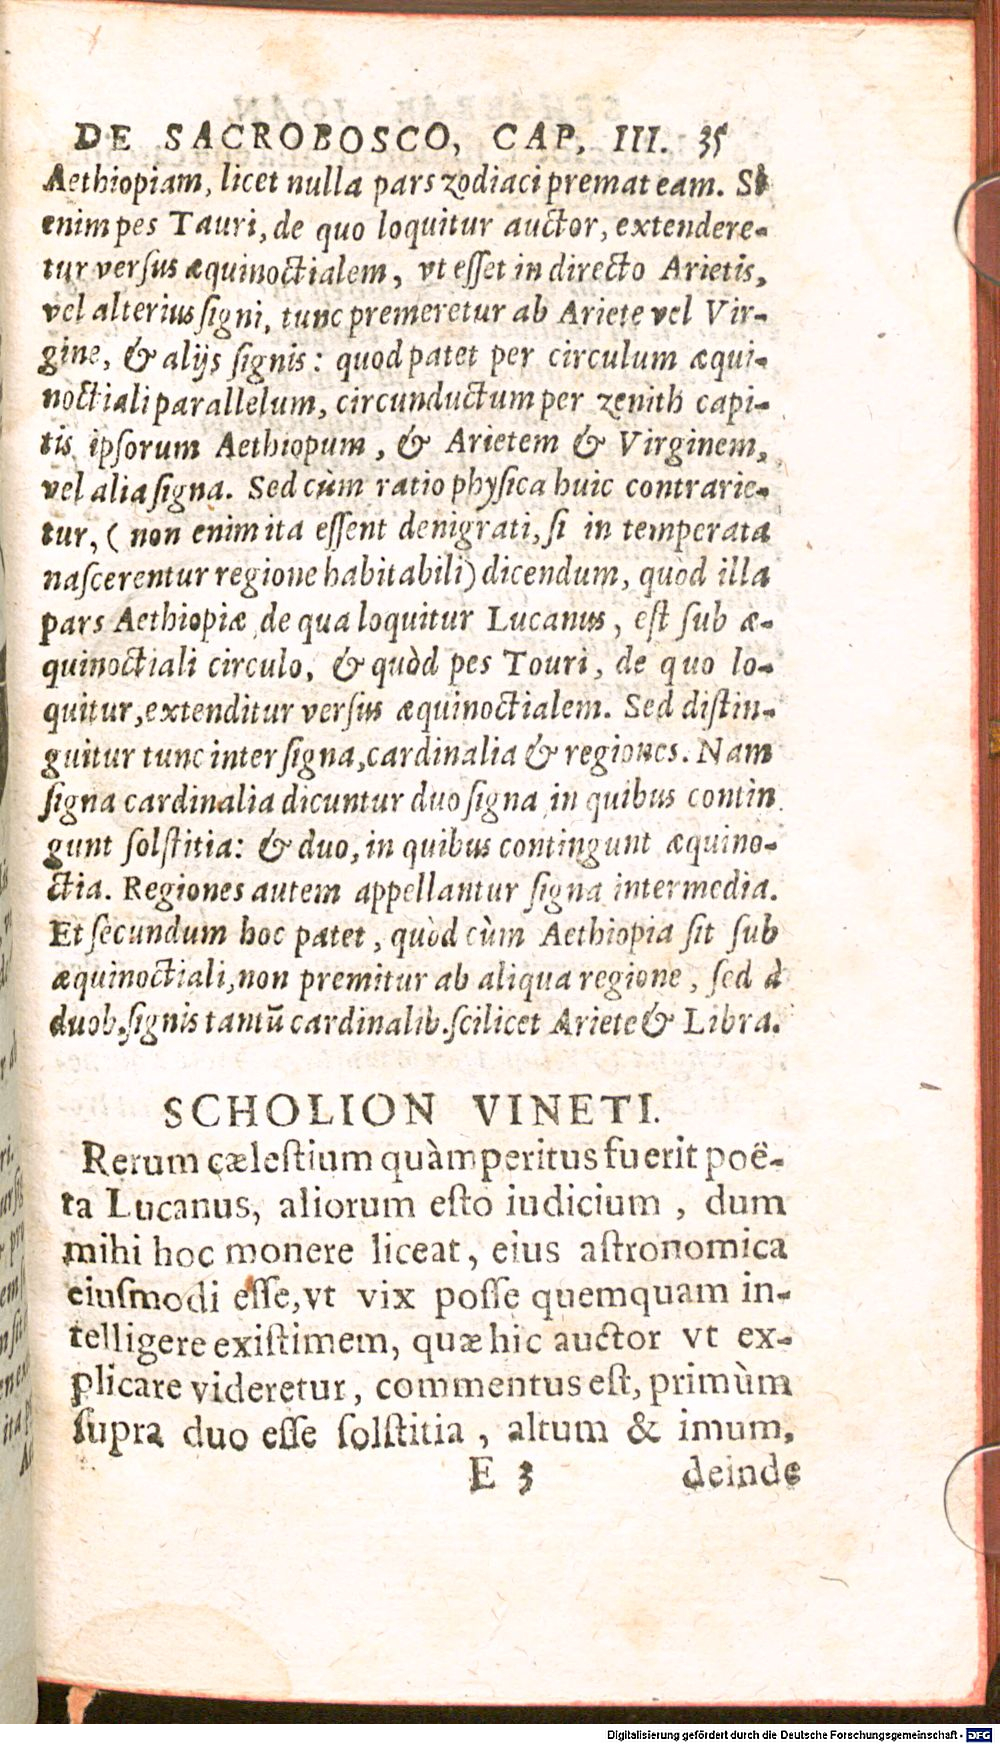 DE SACROBOSCO, CAP. III. 35
Aethiopiam, licet nulla pars zodiaci premat eam. Si
enim pes Tauri, de quo loquitur auctor, extendere-
tur versus æquinoctialem, vt esset in directo Arietis,
vel alterius signi, tunc premeretur ab Ariete vel Vir-
gine, & alijs signis: quod patet per circulum æqui-
noctiali parallelum, circunductum per zenith capi-
tis ipsorum Aethiopum, & Arietem & Virginem,
vel alia signa. Sed cùm ratio physica huic contrarie-
tur, (non enim ita essent denigrati, si in temperata
nascerentur regione habitabili) dicendum, quòd illa
pars Aethiopiæ de qua loquitur Lucanus, est sub æ-
quinoctiali circulo, & quòd pes Touri, de quo lo-
quitur, extenditur versus æquinoctialem. Sed distin-
guitur tunc inter signa, cardinalia & regiones. Nam
signa cardinalia dicuntur duo signa in quibus contin
gunt solstitia: & duo, in quibus contingunt æquino-
ctia. Regiones autem appellantur signa intermedia.
Et secundum hoc patet, quòd cùm Aethiopia sit sub
æquinoctiali, non premitur ab aliqua regione, sed à
duob. signis tantū cardinalib. scilicet Ariete & Libra.
SCHOLION VINETI.
Rerum cælestium quàm peritus fuerit poë-
ta Lucanus, aliorum esto iudicium, dum
mihi hoc monere liceat, eius astronomica
eiusmodi esse, vt vix posse quemquam in-
telligere existimem, quæ hic auctor vt ex-
plicare videretur, commentus est, primùm
supra duo esse solstitia, altum & imum,
E 3 deinde
Digitalisierung gefördert durch die Deutsche Forschungsgemeinschaft - DFG